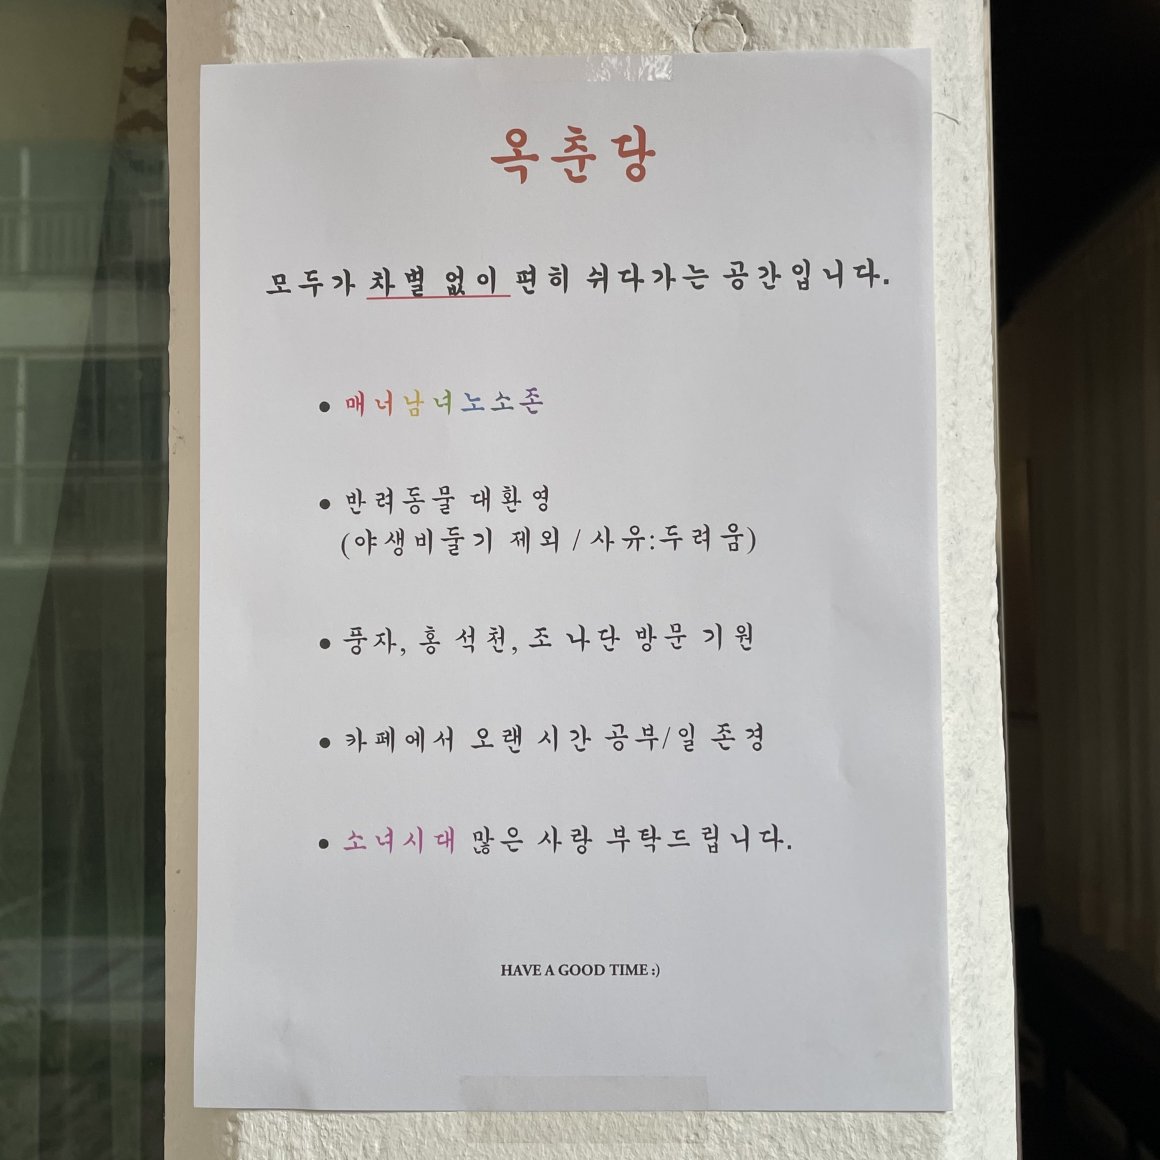 옥춘당
모두가 차별 없이 편히 쉬다가는 공간입니다.
• 매너남녀노소존
• 반려동물 대환영
(야생비둘기 제외 / 사유:두려움)
• 풍자, 홍석천, 조나단 방문 기원
• 카페에서 오랜 시간 공부/일 존경
• 소녀시대 많은 사랑 부탁드립니다.
HAVE A GOOD TIME :)